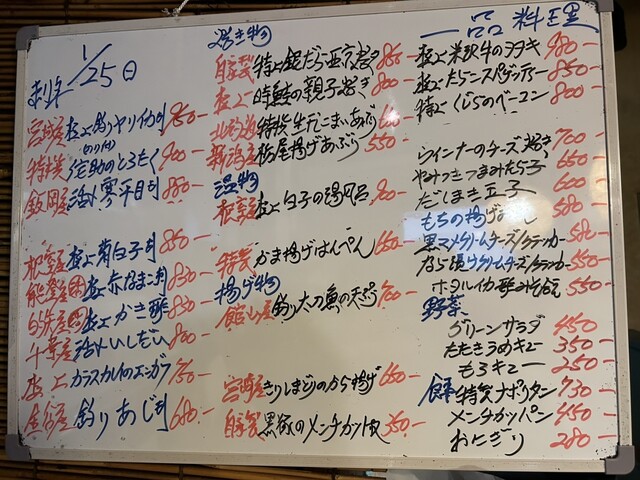 1/25日
宮城産 極上釣りヤリイカ刺 850-
特撰 佐助のとろたく 900-
飯岡産 活〆寒平目刺 880-
松島産 極上菊白子刺 850-
能登産 極上赤なまこ刺 830-
極上かき酢 830-
千葉産 活〆いしだい 800-
極上 カラスカレイのエンガワ 750-
釣りあじ刺 680-
焼き物
自家製 特上銀だら西京焼き 880-
極上 時鮭の親子焼き 800
北海道 特撰生干こまいあぶり 600
新潟産 栃尾揚げあぶり 550-
温物
極上白子の湯同呂 900-
特製 かま揚げはんぺん 650-
揚げ物
館山産 釣り太刀魚の天ぷら 700-
宮城産 きりしまどりのから揚げ 650-
自家製 黒豚のメンチカツ 350-
一品料理
極上米沢牛のタタキ 980-
極上たらこスパゲッティー 850-
特上くじらのベーコン 800-
ウインナーのチーズ焼き 700-
やみつきつまみたら子 650-
だしまき玉子 600-
もちの揚げ 580-
黒マメクリームチーズ/クラッカー 580-
なら漬クリームチーズ/クラッカー 550-
ホタルイカ酢みそ和え 550-
野菜
グリーンサラダ 450
たたきうめキュー 350-
もろキュー 250-
特製ナポリタン 730-
メンチカツパン 450-
おにぎり 280-